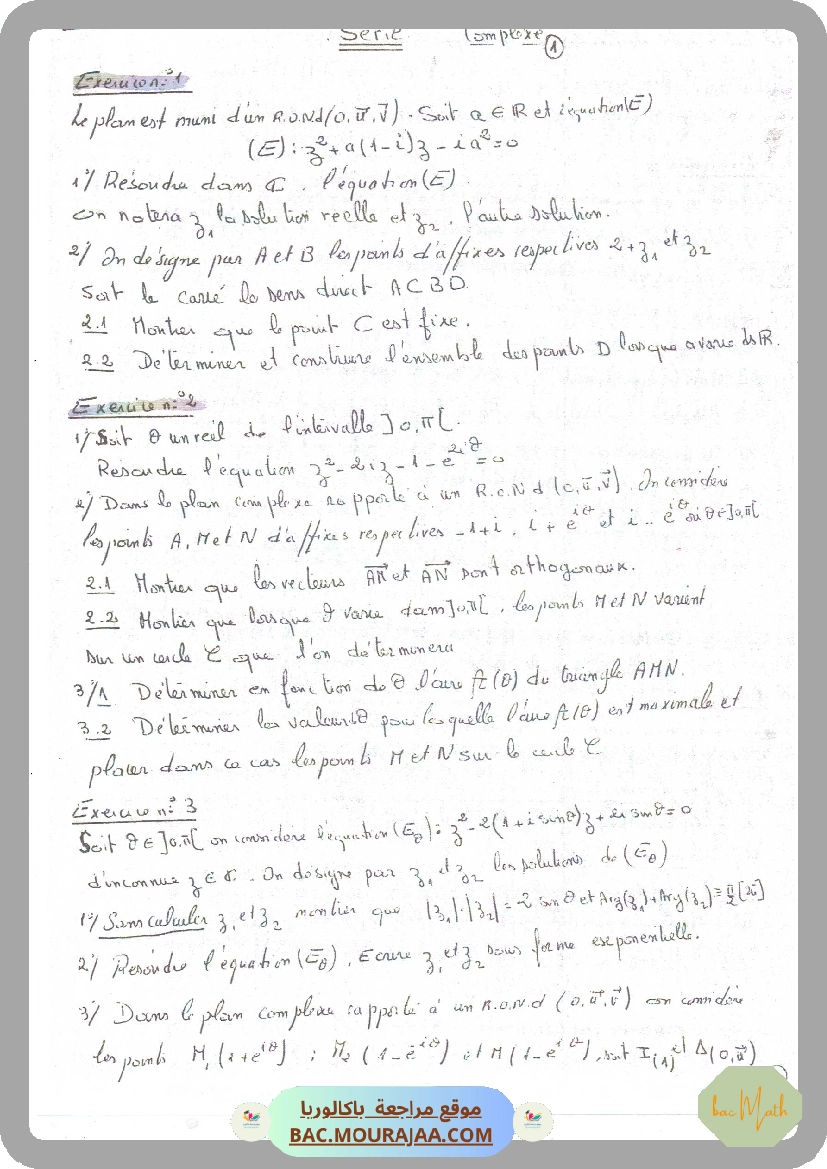 Serie Complexe ①
Exercice n° 1
Le plan est muni d'un R.O.N.d (O, u⃗, v⃗). Soit a ∈ ℝ et l'équation (E)
(E) : z² + a(1-i)z - ia² = 0
1°/ Résoudre dans ℂ, l'équation (E).
on notera z₁ la solution réelle et z₂, l'autre solution.
2°/ On désigne par A et B les points d'affixes respectives 2+z₁ et z₂
Soit le carré de sens direct ACBD.
2.1 Montrer que le point C est fixe.
2.2 Déterminer et construire l'ensemble des points D lorsque a varie ds ℝ.
Exercice n° 2
1°/ Soit θ un réel de l'intervalle ]0,π[.
Résoudre l'équation z² - 2iz - 1 - e^{2iθ} = 0
2°/ Dans le plan complexe rapporté à un R.O.N.d (O, u⃗, v⃗). On considère
les points A, M et N d'affixes respectives -1+i, i + e^{iθ} et i - e^{iθ} où θ ∈ ]0,π[
2.1 Montrer que les vecteurs AM⃗ et AN⃗ sont orthogonaux.
2.2 Montrer que lorsque θ varie dans ]0,π[, les points M et N varient
sur un cercle C que l'on déterminera
3°/1 Déterminer en fonction de θ l'aire A(θ) du triangle AMN.
3.2 Déterminer les valeurs θ pour lesquelle l'aire A(θ) est maximale et
placer dans ce cas les points M et N sur le cercle C
Exercice n° 3
Soit θ ∈ ]0,π[ on considère l'équation (E_θ) : z² - 2(1 + i sinθ)z + 2i sinθ = 0
d'inconnue z ∈ ℂ. On désigne par z₁ et z₂ les solutions de (E_θ)
1°/ Sans calculer z₁ et z₂ montrer que |z₁|.|z₂| = 2 sinθ et Arg(z₁) + Arg(z₂) ≡ π/2 [2π]
2°/ Résoudre l'équation (E_θ), Ecrire z₁ et z₂ sous forme exponentielle.
3°/ Dans le plan complexe rapporté à un R.O.N.d (O, u⃗, v⃗) on considère
les points M₁(1+e^{iθ}) ; M₂(1-e^{-iθ}) et M(1-e^{iθ}), soit I(1) et Δ(O,u⃗)
موقع مراجعة باكالوريا
BAC.MOURAJAA.COM
bac Math